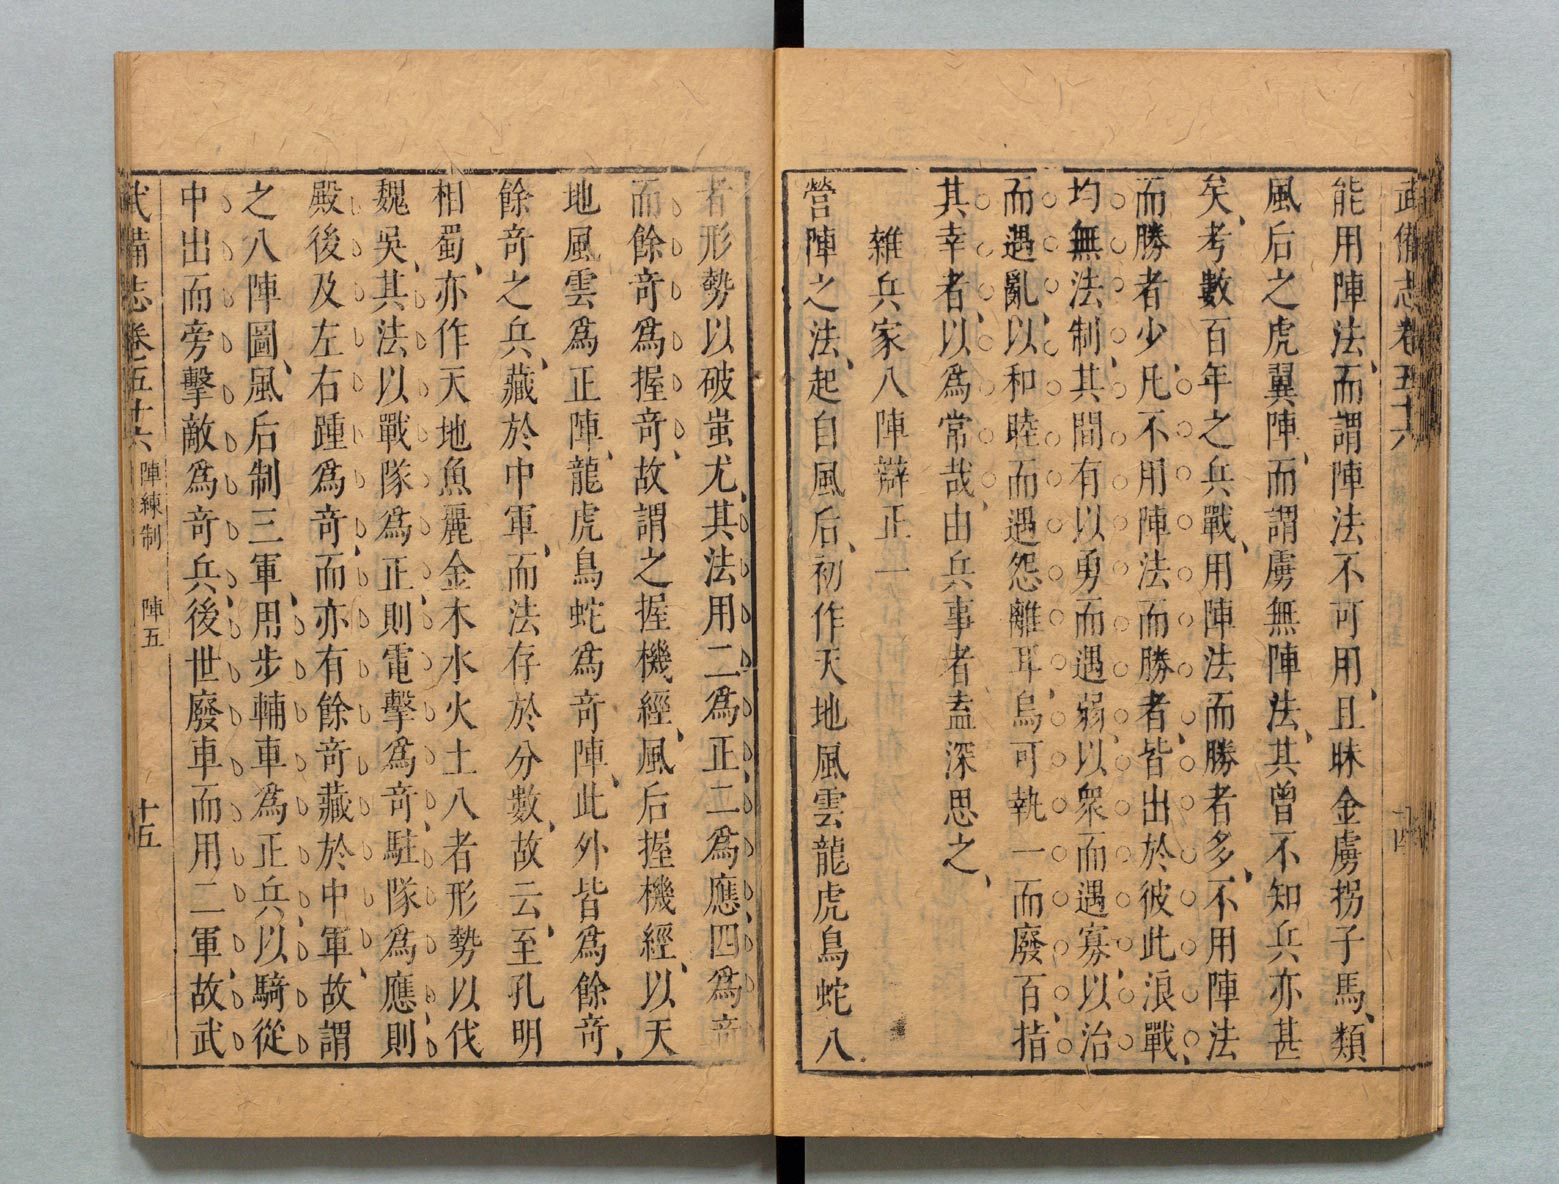 武備志卷五十六
十四
能用陣法、而謂陣法不可用、且昧金虜拐子馬、類
風后之虎翼陣、而謂虜無陣法、其曾不知兵亦甚
矣、考數百年之兵戰、用陣法而勝者多、不用陣法
而勝者少、凡不用陣法而勝者、皆出於彼此浪戰、
均無法制、其間有以勇而遇弱、以衆而遇寡、以治
而遇亂、以和睦而遇怨離耳、烏可執一而廢百、指
其幸者、以爲常哉、由兵事者盍深思之、
雜兵家八陣辯正一
營陣之法、起自風后、初作天地風雲龍虎鳥蛇八
者形勢以破蚩尤、其法用二爲正、二爲應、四爲奇
而餘奇爲握奇、故謂之握機經、風后握機經、以天
地風雲爲正陣、龍虎鳥蛇爲奇陣、此外皆爲餘奇、
餘奇之兵、藏於中軍、而法存於分數、故云、至孔明
相蜀、亦作天地魚麗金木水火土八者形勢以伐
魏吳、其法以戰隊爲正、則電擊爲奇、駐隊爲應、則
殿後及左右踵爲奇、而亦有餘奇藏於中軍、故謂
之八陣圖、風后制三軍、用步輔車爲正兵、以騎從
中出而旁擊敵爲奇兵、後世廢車而用二軍、故武
武備志卷五十六 陣練制 陣五
十五